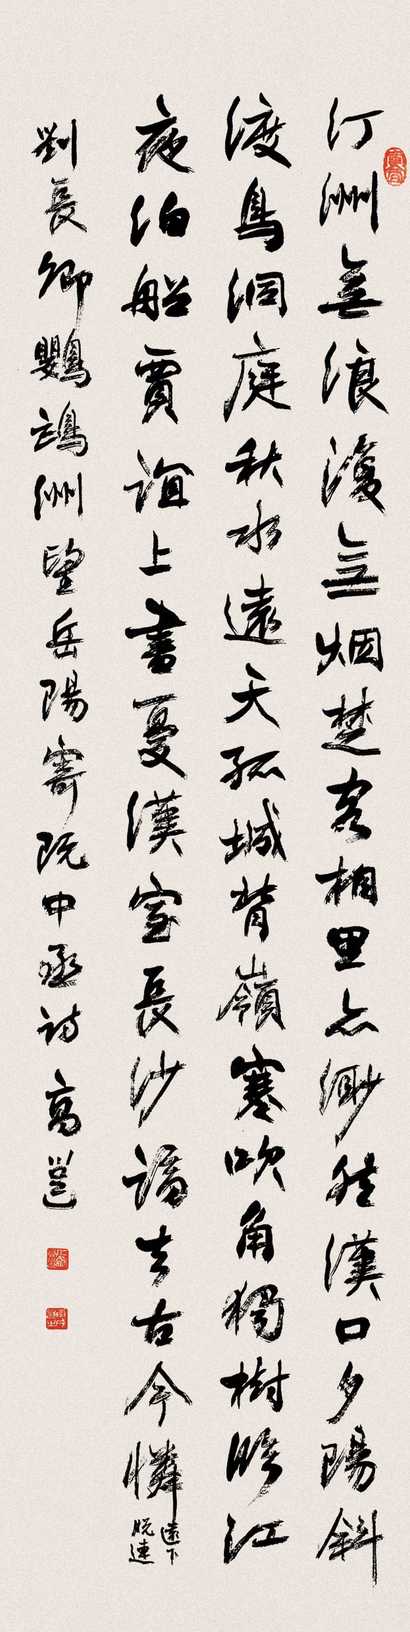 汀洲無浪復無烟楚客相思益緲然漢口夕陽斜
渡鳥洞庭秋水遠天孤城背嶺寒吹角獨樹臨江
夜泊船賈誼上書憂漢室長沙謫去古今憐
遠下
脫連
劉長卿鸚鵡洲望岳陽寄阮中丞詩 高邕